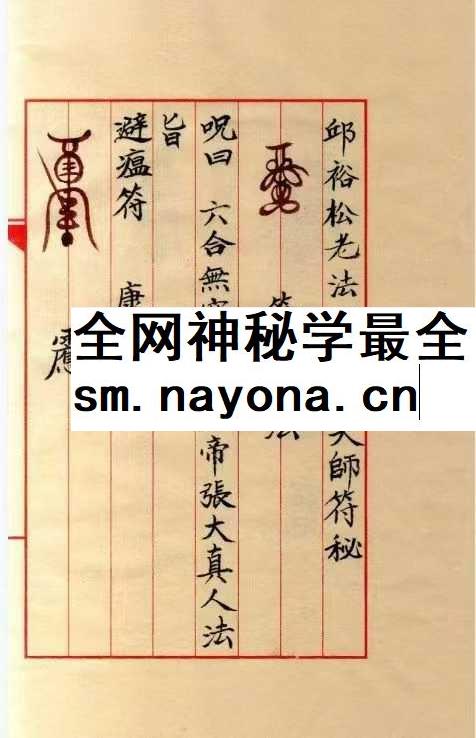 邱裕松老法 師符秘
呪曰 六合無 帝張大真人法
旨
避瘟符
全网神秘学最全
sm.nayona.cn